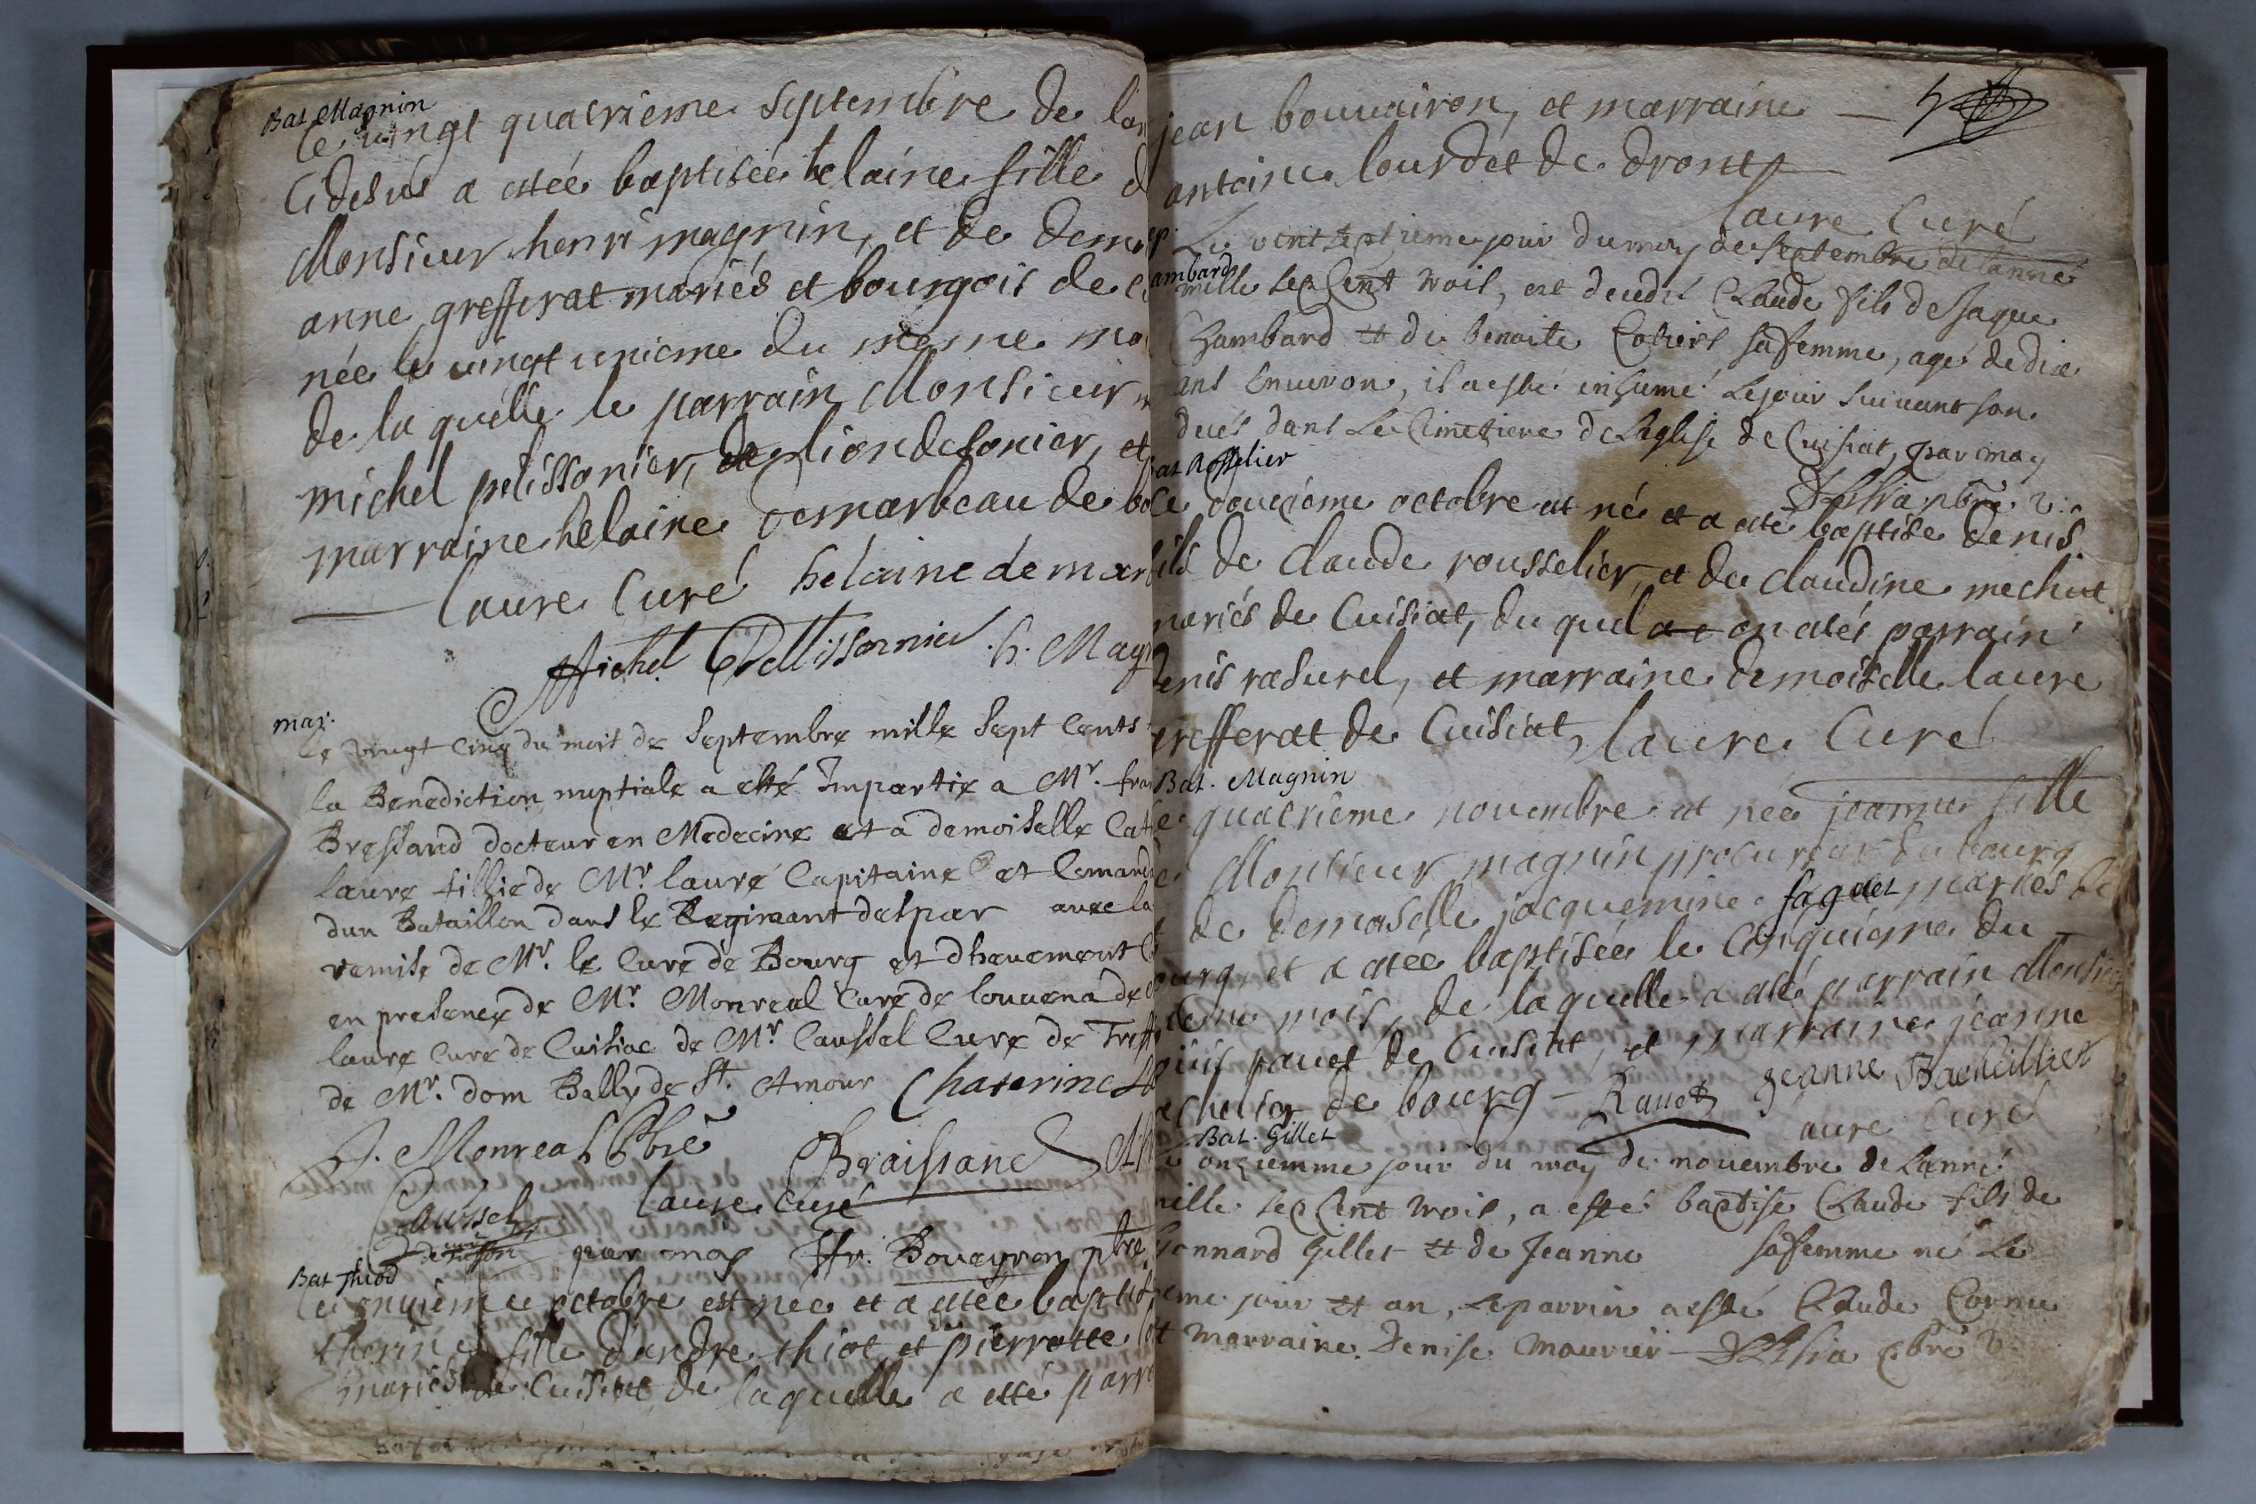 Bat Magnin
le vingt quatrieme septembre de lan
Cidesus a estée baptisée helaine fille d
Monsieur henri magnin, et de demo
anne grefferat mariés et bourgois de
née le vingt unieme du mesme mo
de la quelle le parrain Monsieur
michel pelissonier, de liondesonier, et
marraine helaine demarbeau de bo
laure Curé helaine de mar
Michel Pellissonnier . h. Mag
mar.
le vingt cinq du mois de Septembre mille Sept Cents
la Benediction nuptiale a esté Impartie a Mr. fran
Bressand docteur en Medecine et a demoiselle Cat
laure fillie de Mr laure Capitaine et Comand
dun Bataillon dans le Regimant despar avec la
remise de Mr. le Curé de Bourg et dheuement
en presence de Mr. Monreal Cure de louvena de
laure Cure de Cuisiac de Mr Caussel Cure de Treff
de Mr. dom Bally de St. Amour Chaterine
J. Monreal Pbre Braissand
Caussel laure Curé
curé
par moy ffr. Boveyron ptre
Bat thiod
le onzieme octobre est née et a estée baptis
therine fille dandre thiot et pierrotte
mariés de Cuisiat de laquelle a esté parr
jean bouvairon, et marraine —
antoine lourdet de dront
laure Curé
Le vent septieme jour du moy de septembre de lanné
ambard
mille sep Cent trois, est decedé Claude fils de Jaque
Chambard et de benoite sa femme, agé de dix
ans environ, il a esté inhumé le jour suivant son
decés dans le Cimetiere de leglise de Cuisiat, par moy
pbre v.
bat Rosselier
le douzieme octobre est né et a esté baptisé denis
fils de claude rousselier, et de claudine mechut
mariés de Cuisiat, du quel on estés parrain
denis rasurel, et marraine demoiselle laure
grefferat de Cuisiat, laure Curé
Bat. Magnin
le quatrieme novembre est née jeanne fille
de Monsieur magnin procureur du bourg
de demaselle jacquemine faguet mariés de
bourg, et a estée baptisée le Cinquiéme du
mesme mois, de laquelle a esté parrain Monsieur
pavet de Cuisiat, et marraine jeanne
bachelier de bourg — Ravet Jeanne Bacheillier
laure Curé
Bat. Gillet
onziemme jour du moy de novembre de lanné
mille sep Cent trois, a esté baptisé Claude fils de
Connard Gillet et de Jeanne sa femme né le
meme jour et an, le parrin a esté Claude Cornu
et marraine Denise mourier pbre v.